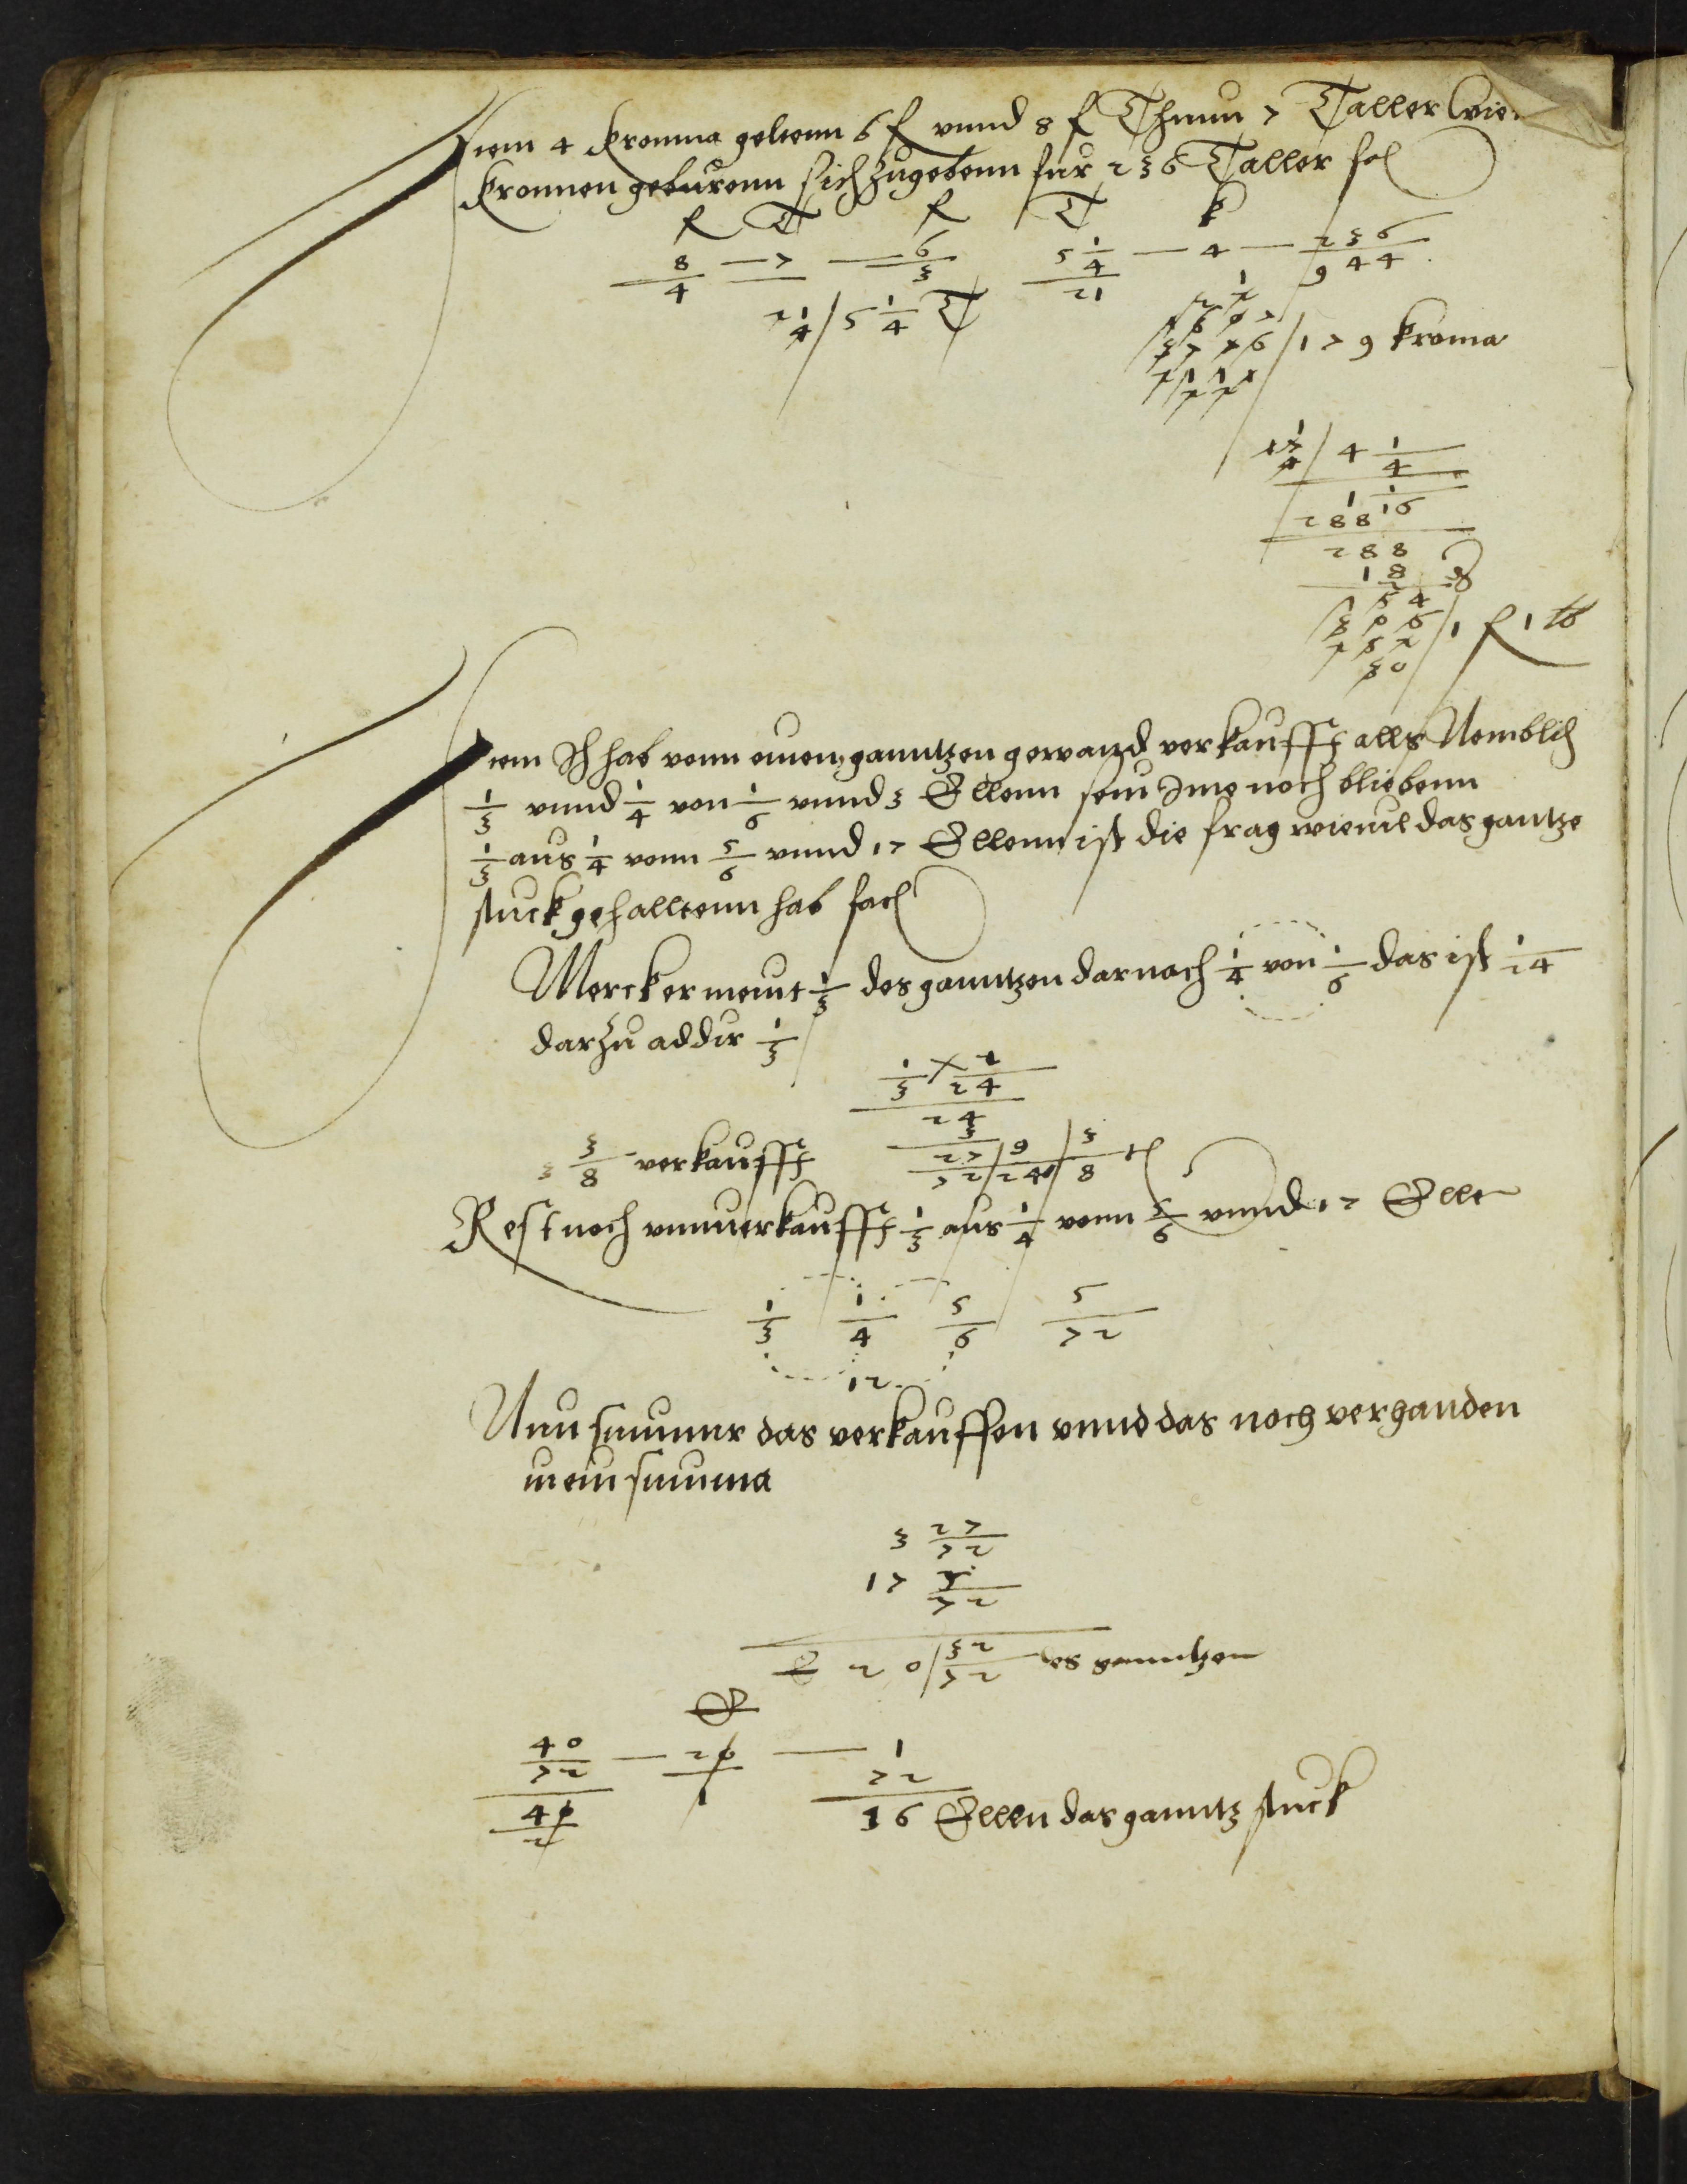 Item 4 Kronna geltenn 6 f vnnd 8 f Thunn 7 Taller wie
Kronnen geburenn sich zugebenn fur 236 Taller fac
f T f T k
8 — 7 — 6 5 1/4 — 4 — 236
4 3 21 944
21/4 / 5 1/4 T
/ 179 krona
17/4 / 4 1/4
1 1/16
288
288
18
/ 1 f 1
Item Ich hab vonn einem ganntzen gewandt verkaufft alls Nemblich
1/3 vnnd 1/4 von 1/6 vnnd 3 Ellenn sein Ime noch bliebenn
1/3 aus 1/4 vonn 5/6 vnnd 17 Ellenn ist die frag wieuil das gantze
stuck gehalltenn hab fac
Merck er nemt 1/3 des ganntzen darnach 1/4 von 1/6 das ist 1/24
darzu addir 1/3
1/3 × 1/24
24
3
3 3/8 verkaufft 27/72 / 9/24 / 3/8 tl
Rest noch vnnuerkaufft 1/3 aus 1/4 vonn 5/6 vnnd 17 Elle
1/3 1/4 5/6 5/72
12
Nun summir das verkauffen vnnd das noch verhanden
in ein summa
3 27/72
17 5/72
E 20 / 32/72 des ganntzen
E
40/72 — 20 — 1
40 1 72
2 36 Ellen das ganntz stuck